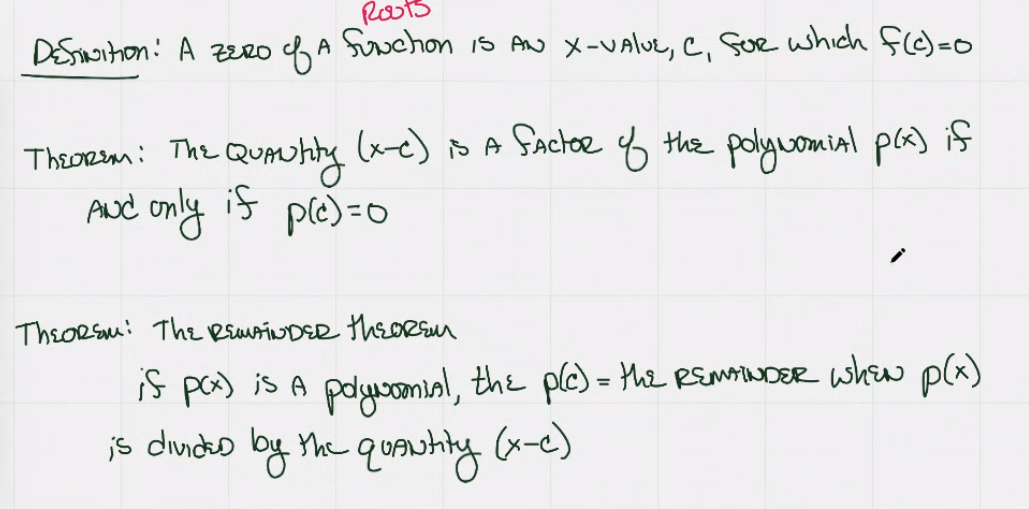 Roots
Definition: A zero of a function is an x-value, c, for which f(c)=0
Theorem: The quantity (x-c) is a factor of the polynomial p(x) if
and only if p(c)=0
Theorem: The remainder theorem
if p(x) is a polynomial, the p(c) = the remainder when p(x)
is divided by the quantity (x-c)